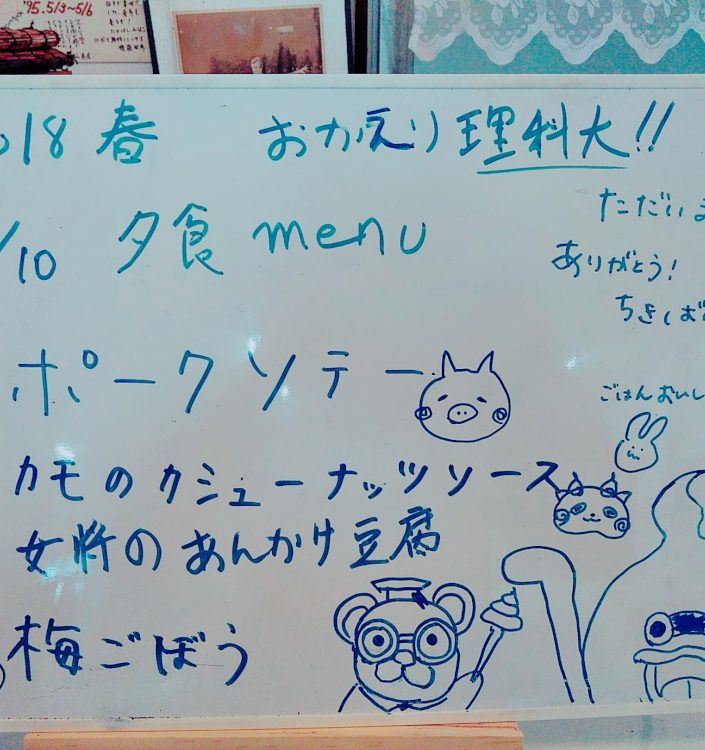 '95.5/3~5/6
018 春 おかえり理科大!!
/10 夕食 menu
ただいま
ありがとう!
ポークソテー
ごはんおいし
カモのカシューナッツソース
女将のあんかけ豆腐
梅ごぼう